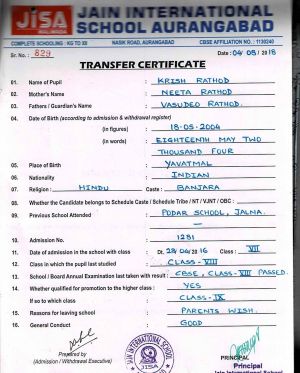 JISA
MALIWADA
JAIN INTERNATIONAL
SCHOOL AURANGABAD
COMPLETE SCHOOLING : KG TO XII NASIK ROAD, AURANGABAD CBSE AFFILIATION NO. : 1130240
Sr. No. : 829 Date : 04/05/2018
TRANSFER CERTIFICATE
01. Name of Pupil : KRISH RATHOD
02. Mother's Name : NEETA RATHOD
03. Fathers / Guardian's Name : VASUDEO RATHOD.
04. Date of Birth (according to admission & withdrawal register)
(in figures) : 18-05-2004
(in words) : EIGHTEENTH MAY TWO
THOUSAND FOUR
05. Place of Birth : YAVATMAL
06. Nationality : INDIAN
07. Religion : HINDU Caste : BANJARA
08. Whether the Candidate belongs to Schedule Caste / Schedule Tribe / NT / VJNT / OBC :
09. Previous School Attended : PODAR SCHOOL, JALNA.
10. Admission No. : 1231
11. Date of admission in the school with class : Dt. 28/04/2016 Class : VII
12. Class in which the pupil last studied : CLASS-VIII
13. School / Board Annual Examination last taken with result : CBSE, CLASS-VIII PASSED.
14. Whether qualified for promotion to the higher class : YES
If so to which class : CLASS-IX
15. Reasons for leaving school : PARENTS WISH.
16. General Conduct : GOOD
Prepared by
(Admission / Withdrawal Executive)
JAIN INTERNATIONAL SCHOOL
JISA
PRINCIPAL
Principal
Jain International School